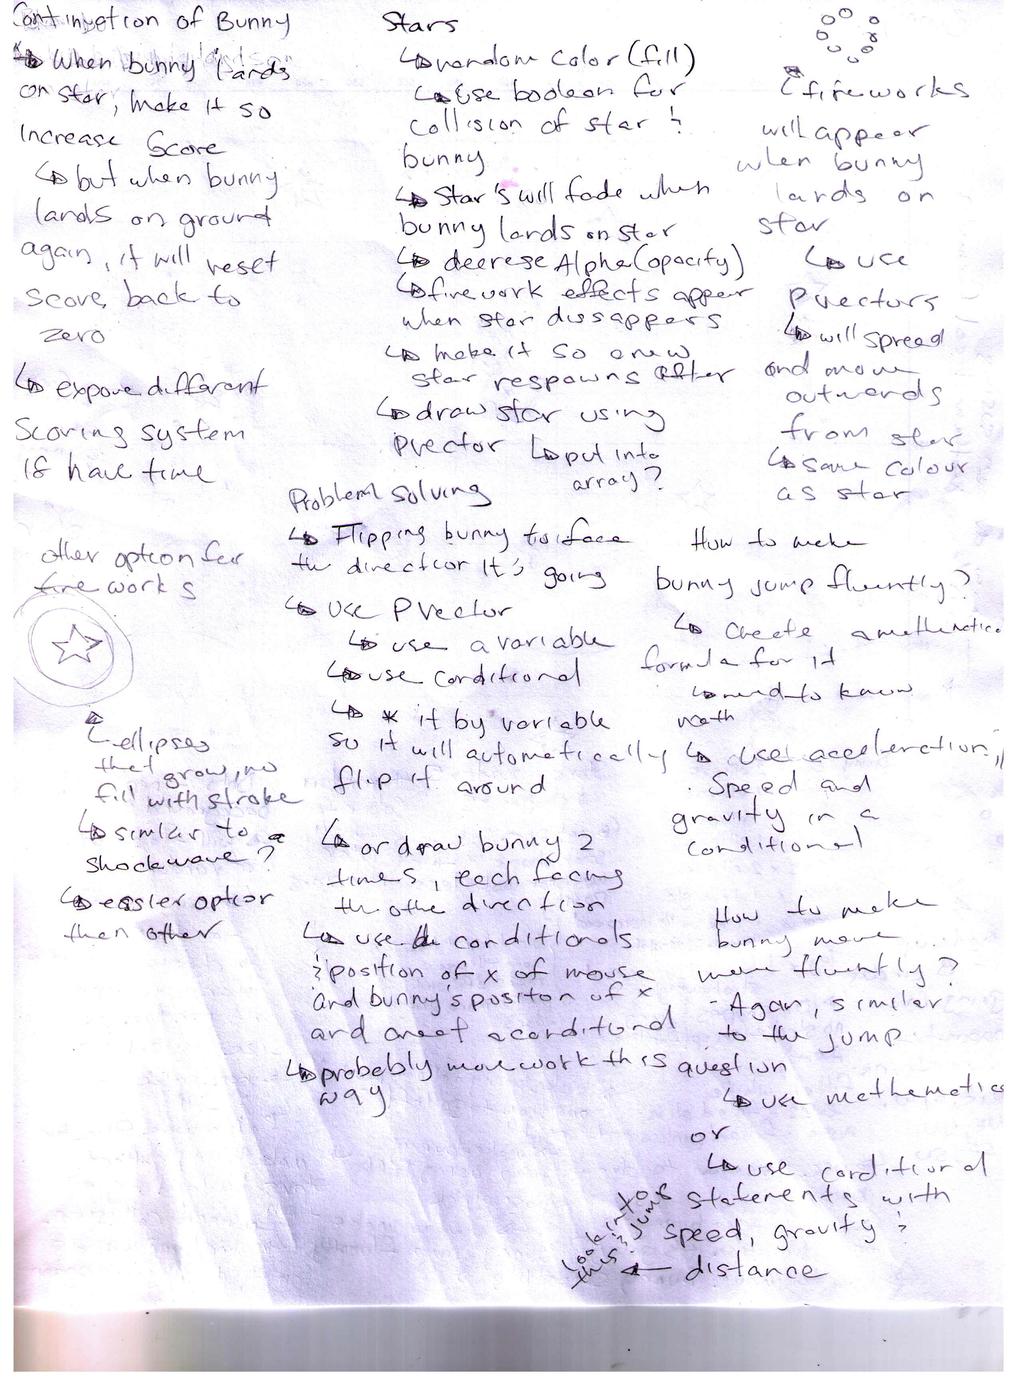 Continuetion of Bunny
↳ when bunny lands
on star, make it so
increase Score
↳ but when bunny
lands on ground
again, it will reset
score, back to
zero
↳ expone different
scoring system
if have time
other option for
fire works
↳ ellipses
that grow, no
fill with stroke
↳ similar to a
shockwave?
↳ easier option
then other
Stars
↳ random color (fill)
↳ use boolean for
collision of star &
bunny
↳ Star's will fade when
bunny lands on star
↳ decrese Alpha (opacity)
↳ firework effects apper
when star dissappers
↳ make it so a new
star respawns after
↳ draw star using
pvector ↳ put into
array?
Problem solving
↳ Flipping bunny to face
the direction it's going
↳ use Pvector
↳ use a variable
↳ use conditional
↳ * it by variable
so it will automatically
flip it around
↳ or draw bunny 2
times, each facing
the othe direction
↳ use conditionals
& position of x of mouse
and bunny's positon of x
and creat a conditional
↳ probebly more work this
way
↳ fireworks
will appear
when bunny
lands on
star
↳ use
pvectors
↳ will spread
and move
outwards
from star
↳ same colour
as star
How to make
bunny jump fluently?
↳ create a mathematica
formula for it
↳ need to know
math
↳ use acceleration,
speed and
gravity in a
conditional
How to make
bunny move
more fluently?
- Again, similar
to the jump
question
↳ use mathematics
or
↳ use conditional
statements with
speed, gravity &
← distance
Look into
this & jump